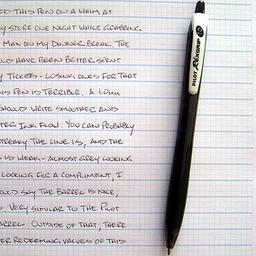 ED THIS PEN ON A WHIM AT
Y STORE ONE NIGHT WHILE GRABBING
MAN ON MY DINNER BREAK. THE
OULD HAVE BEEN BETTER SPENT
Y TICKETS - LOSING ONES FOR THAT
IS PEN IS TERRIBLE. A 1.0MM
SHOULD WRITE SMOOTHER AND
TER INK FLOW. YOU CAN PROBABLY
STREAKY THE LINE IS, AND THE
IS WEAK - ALMOST GREY LOOKING.
LOOKING FOR A COMPLIMENT, I
OULD SAY THE BARREL IS NICE,
VERY SIMILAR TO THE PILOT
ARREL. OUTSIDE OF THAT, THERE
ER REDEEMING VALUES OF THIS
PILOT REXGRIP